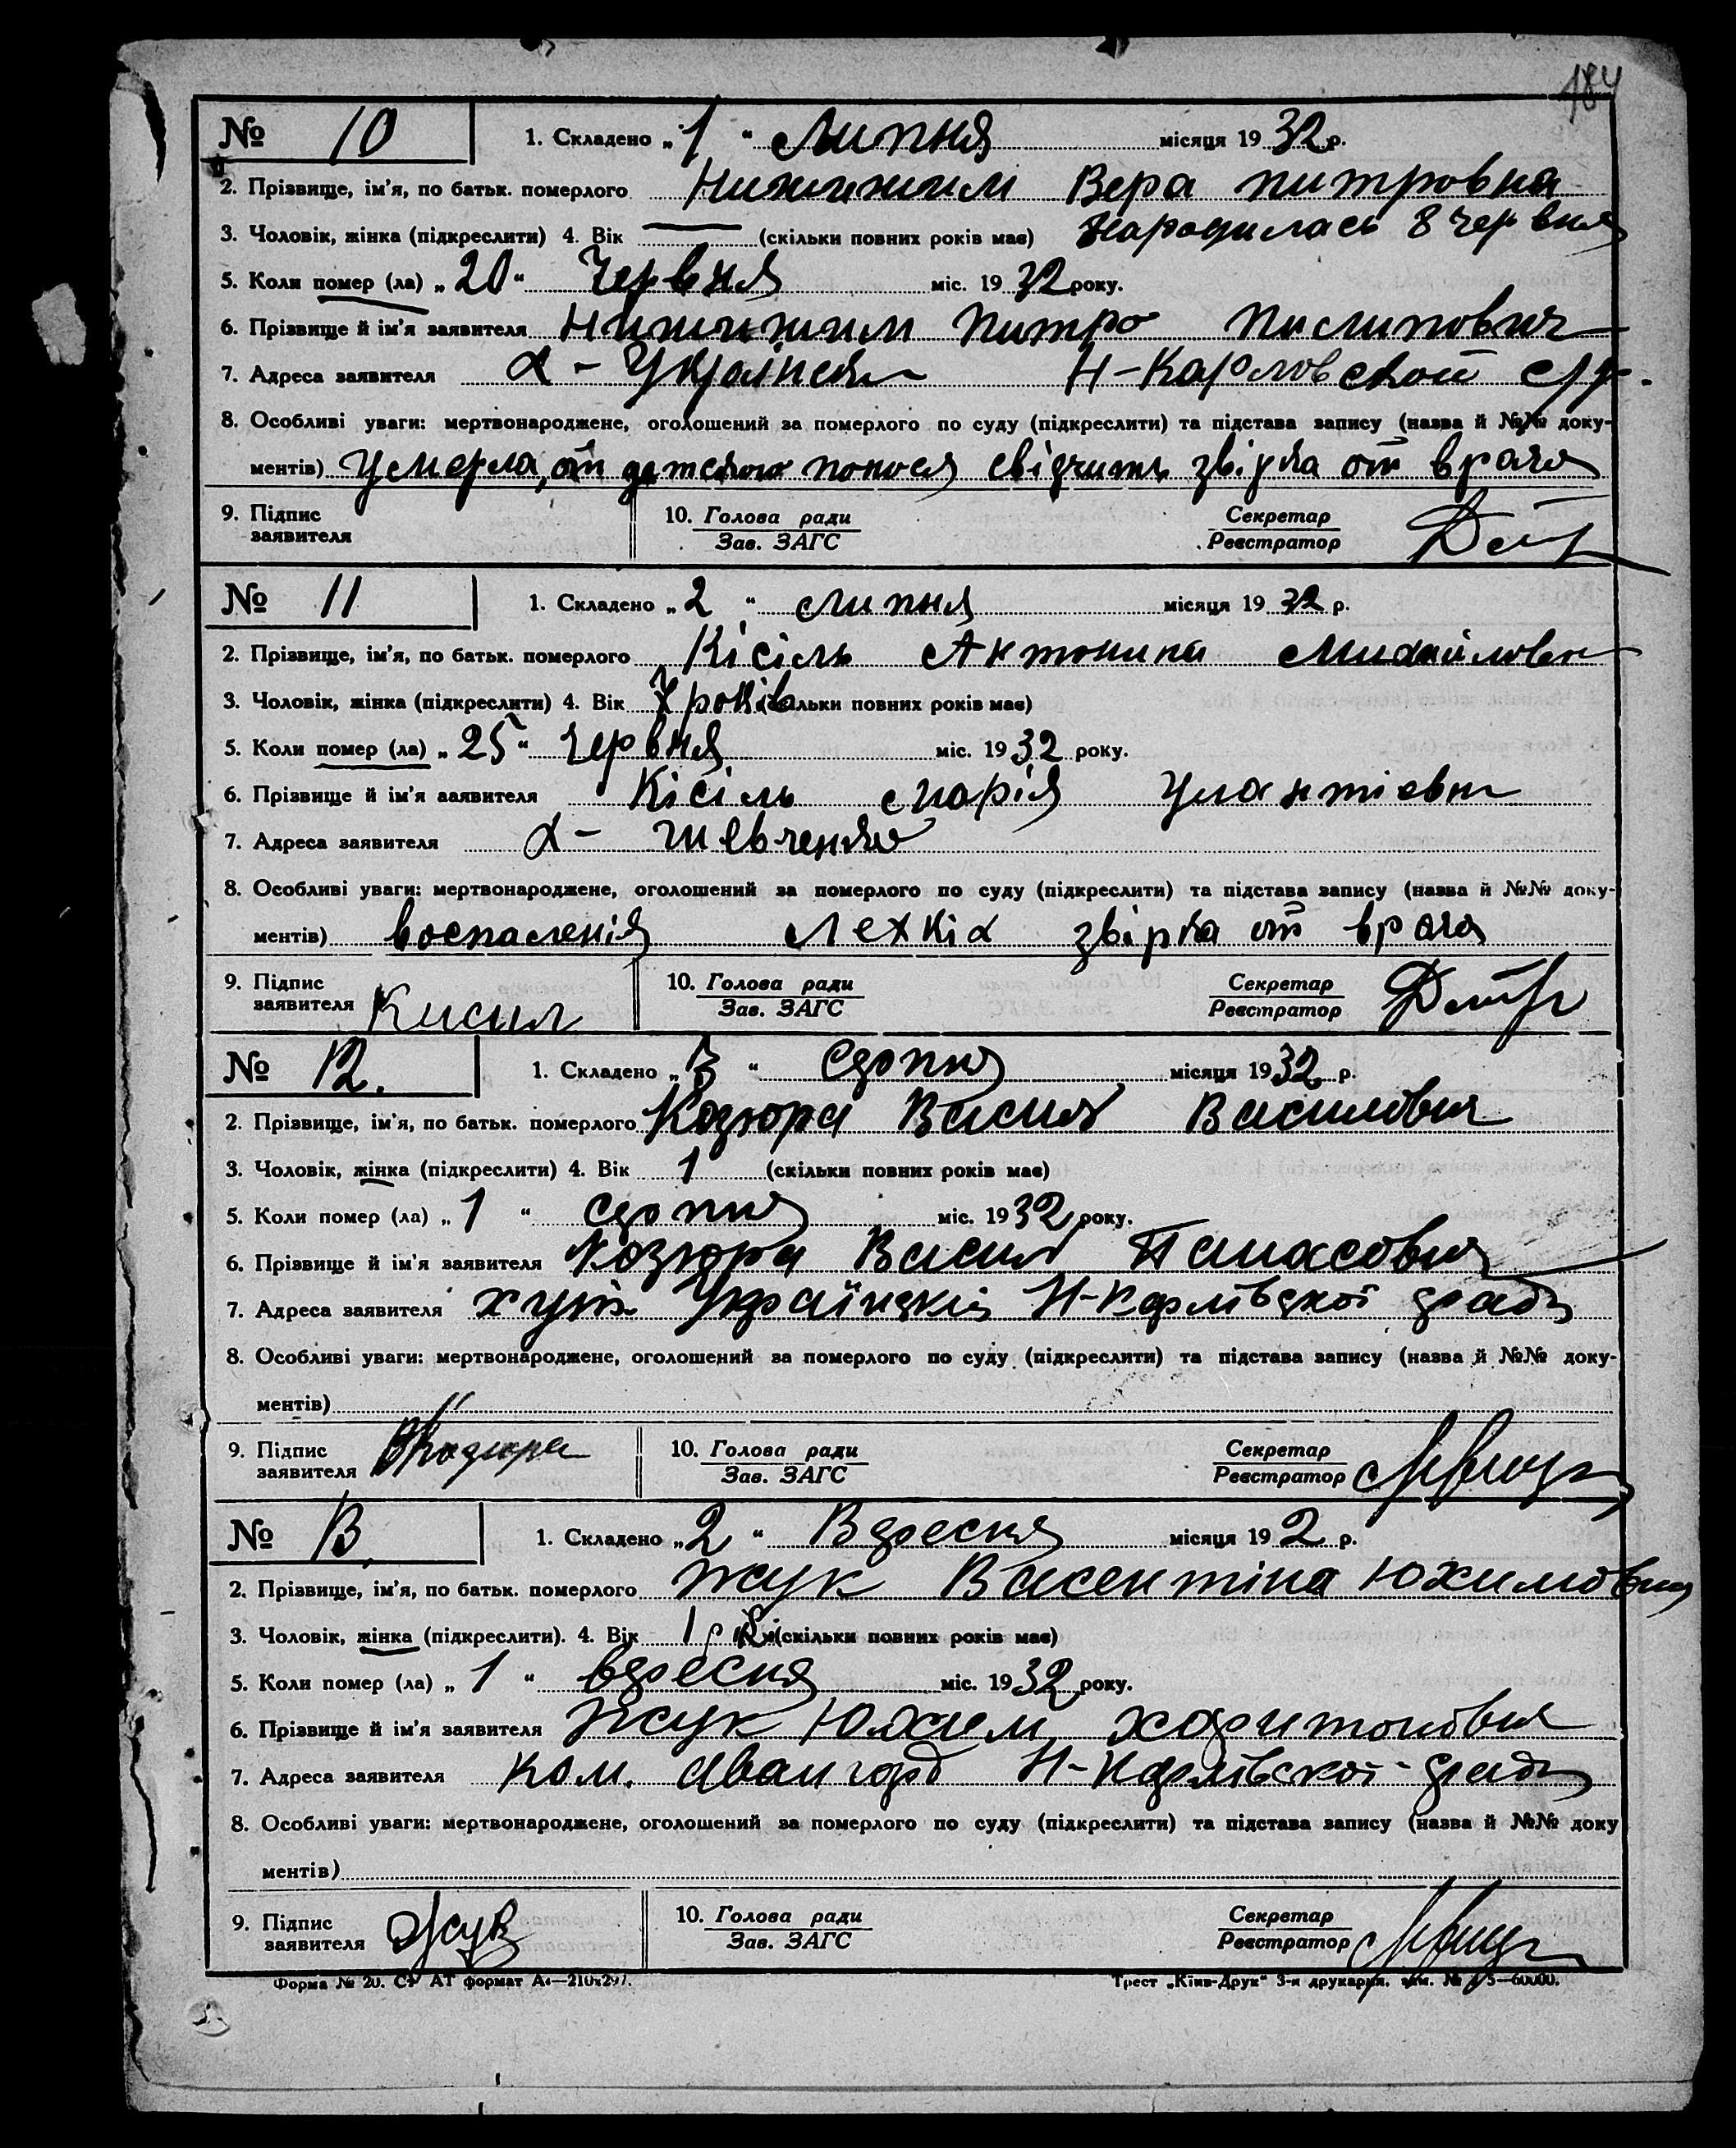 184
№ 10 1. Складено „1“ Липня місяця 1932 р.
2. Прізвище, ім'я, по батьк. померлого Нижижим Вера питровна
3. Чоловік, жінка (підкреслити) 4. Вік — (скільки повних років має) Народилась 8 червня
5. Коли помер (ла) „20“ Червня міс. 1932 року.
6. Прізвище й ім'я заявителя Нижижим Питро
7. Адреса заявителя х - Українськ Н-Карловской с/р.
8. Особливі уваги: мертвонароджене, оголошений за померлого по суду (підкреслити) та підстава запису (назва й №№ доку-
ментів) Умерла, от детского поноса свідчить звірка от врача
9. Підпис 10. Голова ради Секретар
заявителя Зав. ЗАГС Реєстратор
№ 11 1. Складено „2“ Липня місяця 1932 р.
2. Прізвище, ім'я, по батьк. померлого Кісіль Антонина Михайловн
3. Чоловік, жінка (підкреслити) 4. Вік 7 років (скільки повних років має)
5. Коли помер (ла) „25“ Червня міс. 1932 року.
6. Прізвище й ім'я заявителя Кісіль Марія
7. Адреса заявителя х - Шевченко
8. Особливі уваги: мертвонароджене, оголошений за померлого по суду (підкреслити) та підстава запису (назва й №№ доку-
ментів) воспаленія Легкіх звірка от врача
9. Підпис 10. Голова ради Секретар
заявителя Кисил Зав. ЗАГС Реєстратор
№ 12. 1. Складено „3“ Серпня місяця 1932 р.
2. Прізвище, ім'я, по батьк. померлого Козюра Васил Василович
3. Чоловік, жінка (підкреслити) 4. Вік 1 (скільки повних років має)
5. Коли помер (ла) „1“ серпня міс. 1932 року.
6. Прізвище й ім'я заявителя Козюра Васил Панасович
7. Адреса заявителя хутір Український Н-Карлівської сради
8. Особливі уваги: мертвонароджене, оголошений за померлого по суду (підкреслити) та підстава запису (назва й №№ доку-
ментів)
9. Підпис 10. Голова ради Секретар
заявителя ВКозюра Зав. ЗАГС Реєстратор
№ 13. 1. Складено „2“ Вересня місяця 192 р.
2. Прізвище, ім'я, по батьк. померлого Жук Валентіна Юхимовна
3. Чоловік, жінка (підкреслити). 4. Вік 1 рік (скільки повних років має)
5. Коли помер (ла) „1“ вересня міс. 1932 року.
6. Прізвище й ім'я заявителя Жук Юхим Харитонович
7. Адреса заявителя Ком. Авангард Н-Карлівської сради
8. Особливі уваги: мертвонароджене, оголошений за померлого по суду (підкреслити) та підстава запису (назва й №№ доку
ментів)
9. Підпис 10. Голова ради Секретар
заявителя Жук Зав. ЗАГС Реєстратор
Форма № 20. Ст АТ формат А4—210х297. Трест „Київ-Друк“ 3-я друкарня.